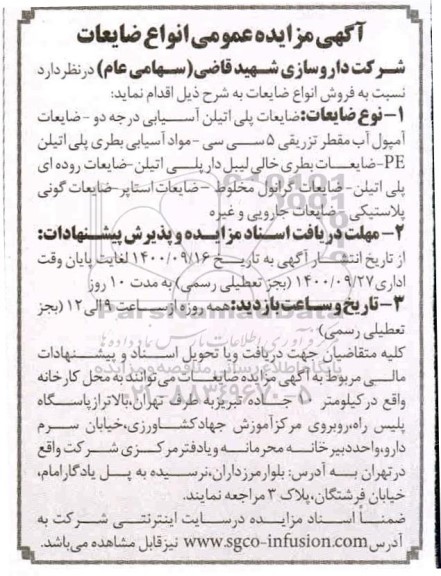 آگهی مزایده عمومی انواع ضایعات
شرکت داروسازی شهید قاضی (سهامی عام) در نظر دارد
نسبت به فروش انواع ضایعات به شرح ذیل اقدام نماید:
۱- نوع ضایعات: ضایعات پلی اتیلن آسیابی درجه دو - ضایعات
آمپول آب مقطر تزریقی ۵ سی سی - مواد آسیابی بطری پلی اتیلن
PE- ضایعات بطری خالی لیبل دار پلی اتیلن- ضایعات روده ای
پلی اتیلن - ضایعات گرانول مخلوط - ضایعات استاپر- ضایعات گونی
پلاستیکی - ضایعات جارویی و غیره
۲- مهلت دریافت اسناد مزایده و پذیرش پیشنهادات:
از تاریخ انتشار آگهی به تاریخ ۱۴۰۰/۰۹/۱۶ لغایت پایان وقت
اداری ۱۴۰۰/۰۹/۲۷ (بجز تعطیلی رسمی) به مدت ۱۰ روز
۳- تاریخ و ساعت بازدید: همه روزه از ساعت ۹ الی ۱۲ (بجز
تعطیلی رسمی)
کلیه متقاضیان جهت دریافت ویا تحویل اسناد و پیشنهادات
مالی مربوط به آگهی مزایده ضایعات می توانند به محل کارخانه
واقع در کیلومتر ۵ جاده تبریز به طرف تهران، بالاتر از پاسگاه
پلیس راه، روبروی مرکز آموزش جهاد کشاورزی، خیابان سرم
دارو، واحد دبیرخانه محرمانه و یا دفتر مرکزی شرکت واقع
در تهران به آدرس: بلوار مرزداران، نرسیده به پل یادگار امام،
خیابان فرشتگان، پلاک ۳ مراجعه نمایند.
ضمناً اسناد مزایده در سایت اینترنتی شرکت به
آدرس www.sgco-infusion.com نیز قابل مشاهده می باشد.